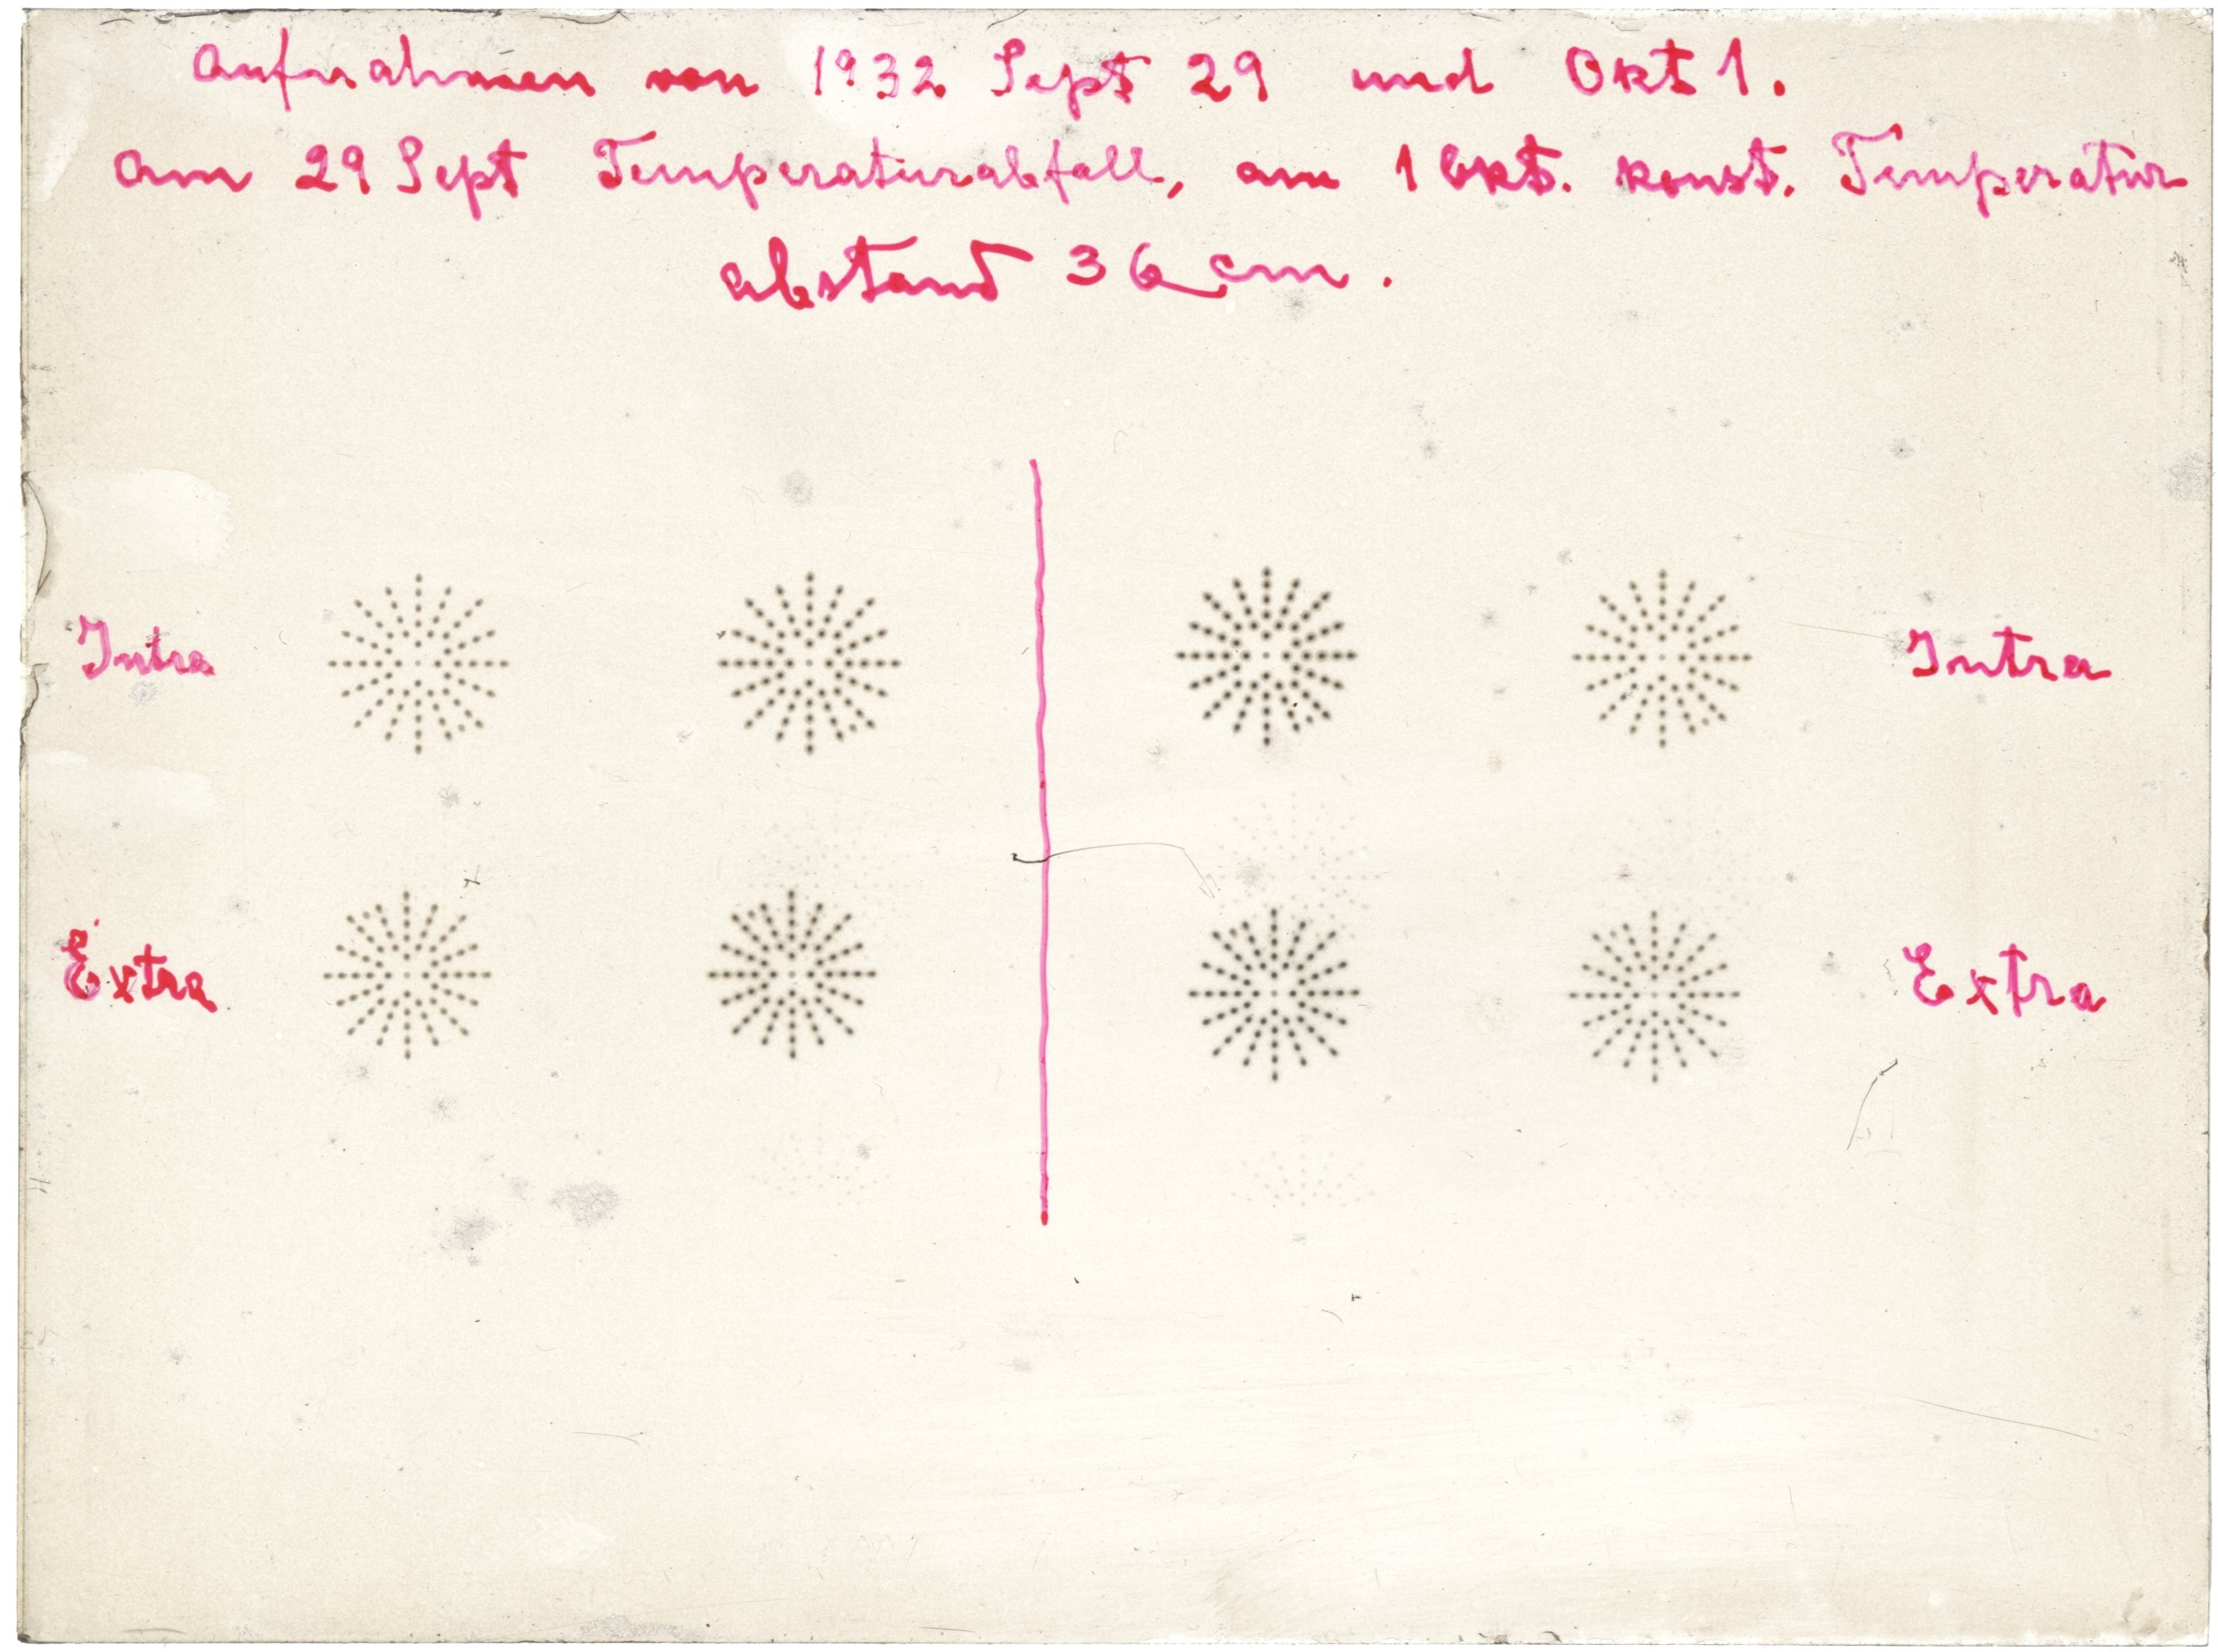 Aufnahmen von 1932 Sept 29 und Okt 1.
Am 29 Sept Temperaturabfall, am 1 Okt. konst. Temperatur
Abstand 36 cm.
Intra Intra
Extra Extra